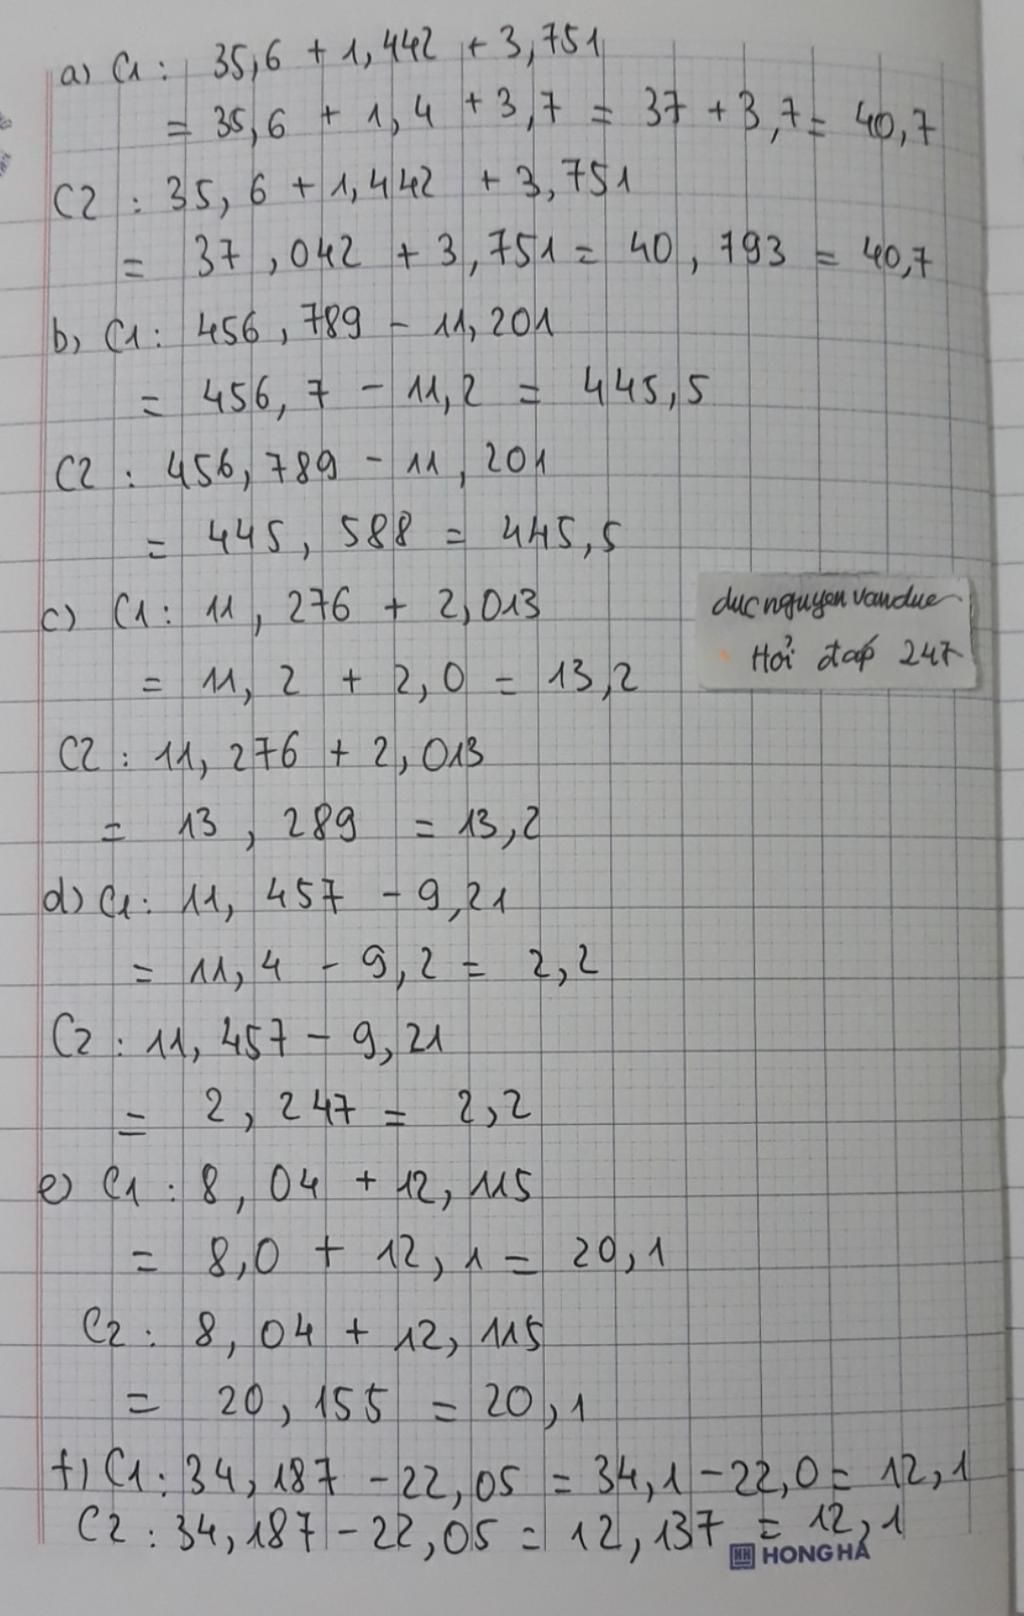 a) C1: 35,6 + 1,442 + 3,751
= 35,6 + 1,4 + 3,7 = 37 + 3,7 = 40,7
C2 : 35,6 + 1,442 + 3,751
= 37,042 + 3,751 = 40,793 = 40,7
b) C1: 456,789 - 11,201
= 456,7 - 11,2 = 445,5
C2 : 456,789 - 11,201
= 445,588 = 445,5
c) C1: 11,276 + 2,013
= 11,2 + 2,0 = 13,2
ducnguyenvanduc
Hỏi đáp 247
C2 : 11,276 + 2,013
= 13,289 = 13,2
d) C1: 11,457 - 9,21
= 11,4 - 9,2 = 2,2
C2 : 11,457 - 9,21
= 2,247 = 2,2
e) C1 : 8,04 + 12,115
= 8,0 + 12,1 = 20,1
C2 : 8,04 + 12,115
= 20,155 = 20,1
f) C1: 34,187 - 22,05 = 34,1 - 22,0 = 12,1
C2 : 34,187 - 22,05 = 12,137 = 12,1
HONG HA